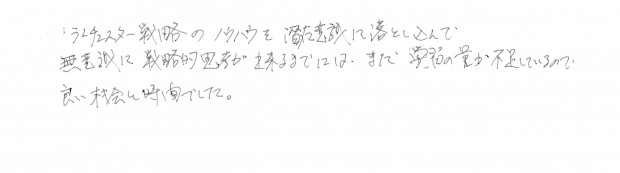 ランチェスター戦略のノウハウを潜在意識に落とし込んで
無意識に戦略的思考が出来るまでには、まだ学習の量が不足しているので
良い機会と時間でした。